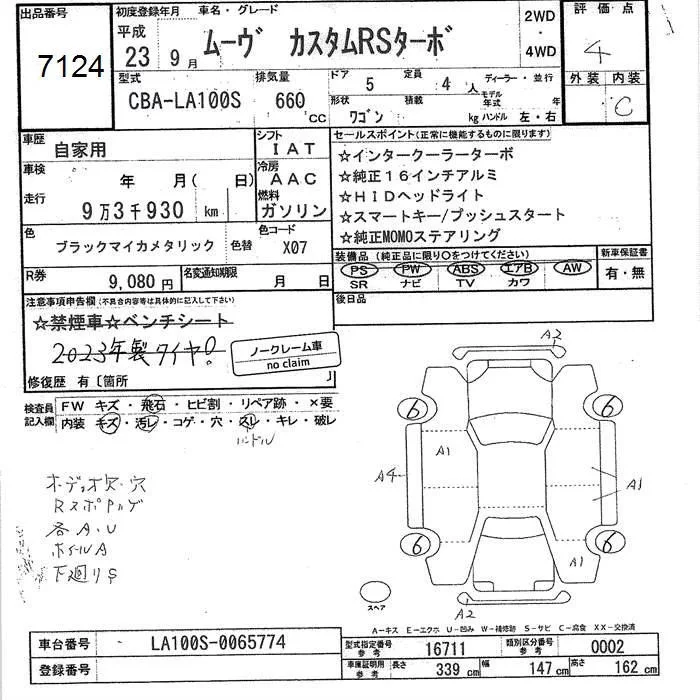 出品番号
7124
初度登録年月 車名・グレード
平成
23 9月 ムーヴ カスタムRSターボ
2WD
・
4WD
評価点
4
型式 排気量
CBA-LA100S 660 CC
ドア 5 定員 4人 ディーラー・並行
形状 積載 モデル年式 年
ワゴン kg ハンドル 左・右
外装 内装
C
車歴
自家用
シフト
IAT
車検
年 月(日)
冷房
AAC
走行
9万3千930 km
燃料
ガソリン
色
ブラックマイカメタリック 色替
色コード
X07
R券
9,080円
名変通知期限
月 日
セールスポイント(正常に機能するものに限ります)
☆インタークーラーターボ
☆純正16インチアルミ
☆HIDヘッドライト
☆スマートキー/プッシュスタート
☆純正MOMOステアリング
装備品(純正品に限り○をつけてください)
PS PW ABS エアB AW
SR ナビ TV カワ
新車保証書
有・無
後日品
注意事項申告欄(不具合内容等は具体的に記入して下さい)
☆禁煙車☆ベンチシート
2023年製タイヤ!
ノークレーム車
no claim
修復歴 有〔箇所 〕
検査員記入欄
FW キズ・飛石・ヒビ割・リペア跡・×要
内装 キズ・汚レ・コゲ・穴・スレ・キレ・破レ
ハンドル
オーディオ欠・穴
各A.U
ホイールA
下廻りS
A2
6 6
A1
A4 A1
6 6
A1
A2
スペア
A-キズ E-エクボ U-凹み W-補修跡 S-サビ C-腐食 XX-交換済
車台番号 LA100S-0065774
登録番号
型式指定番号 参考 16711 類別区分番号 参考 0002
車庫証明用 参考 長さ 339 cm 幅 147 cm 高さ 162 cm